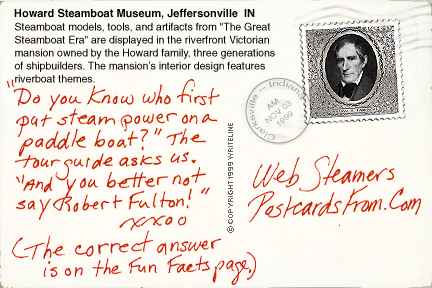 Howard Steamboat Museum, Jeffersonville IN
Steamboat models, tools, and artifacts from "The Great
Steamboat Era" are displayed in the riverfront Victorian
mansion owned by the Howard family, three generations
of shipbuilders. The mansion's interior design features
riverboat themes.
"Do you know who first
put steam power on a
paddle boat?" The
tour guide asks us.
"And you better not
say Robert Fulton!"
xxoo
(The correct answer
is on the Fun Facts page.)
© COPYRIGHT 1999 WRITELINE
Clarksville - Indiana
AM
NOV 03
1999
Web Steamers
PostcardsFrom.Com